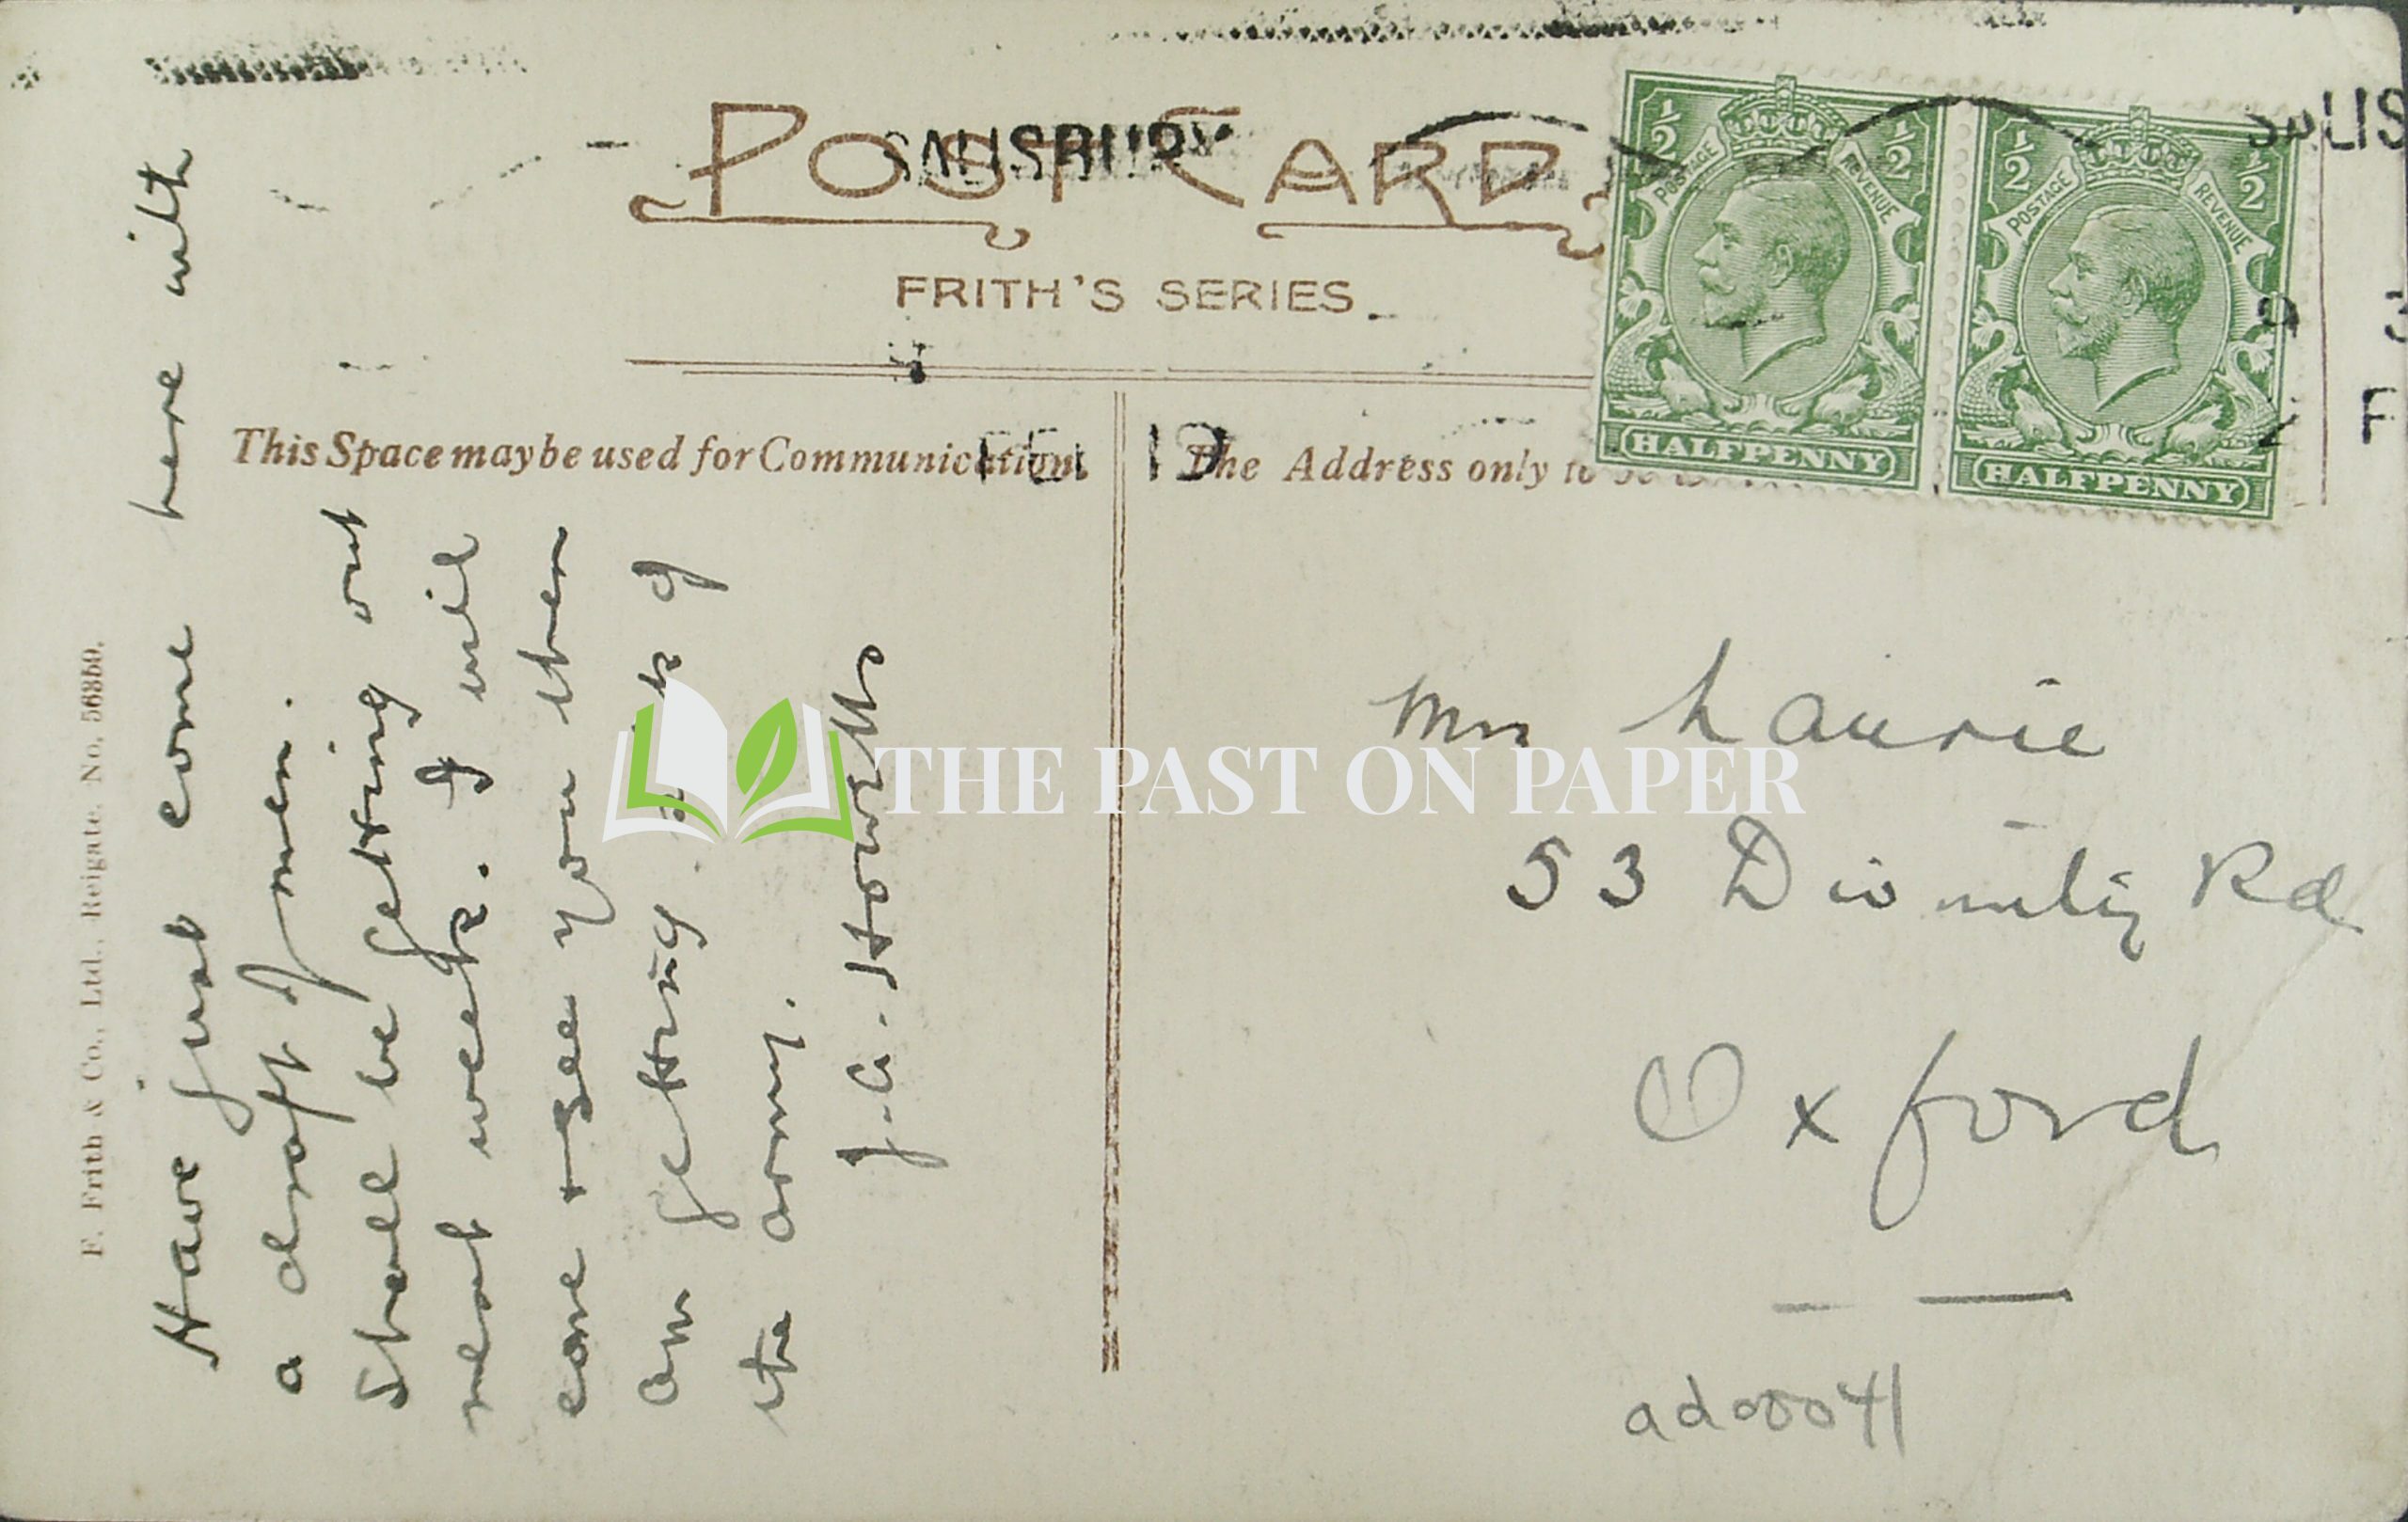 POST CARD
FRITH'S SERIES.
This Space may be used for Communication.
The Address only to be
SALISBURY
SALIS
9 3
F
FE 19
½ ½
POSTAGE REVENUE
HALFPENNY
½ ½
POSTAGE REVENUE
HALFPENNY
F. Frith & Co., Ltd., Reigate. No. 56859.
Have just come here with
a draft of men.
Shall be getting out
next week. I will
come & see you then
am getting sick of
the army.
J.A. Howells
Mr Laurie
53 Divinity Rd
Oxford
ad00041
THE PAST ON PAPER